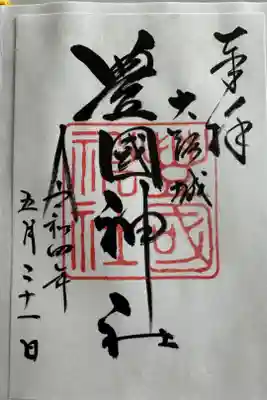 奉拝
大阪城
豊國神社
令和四年
五月二十一日